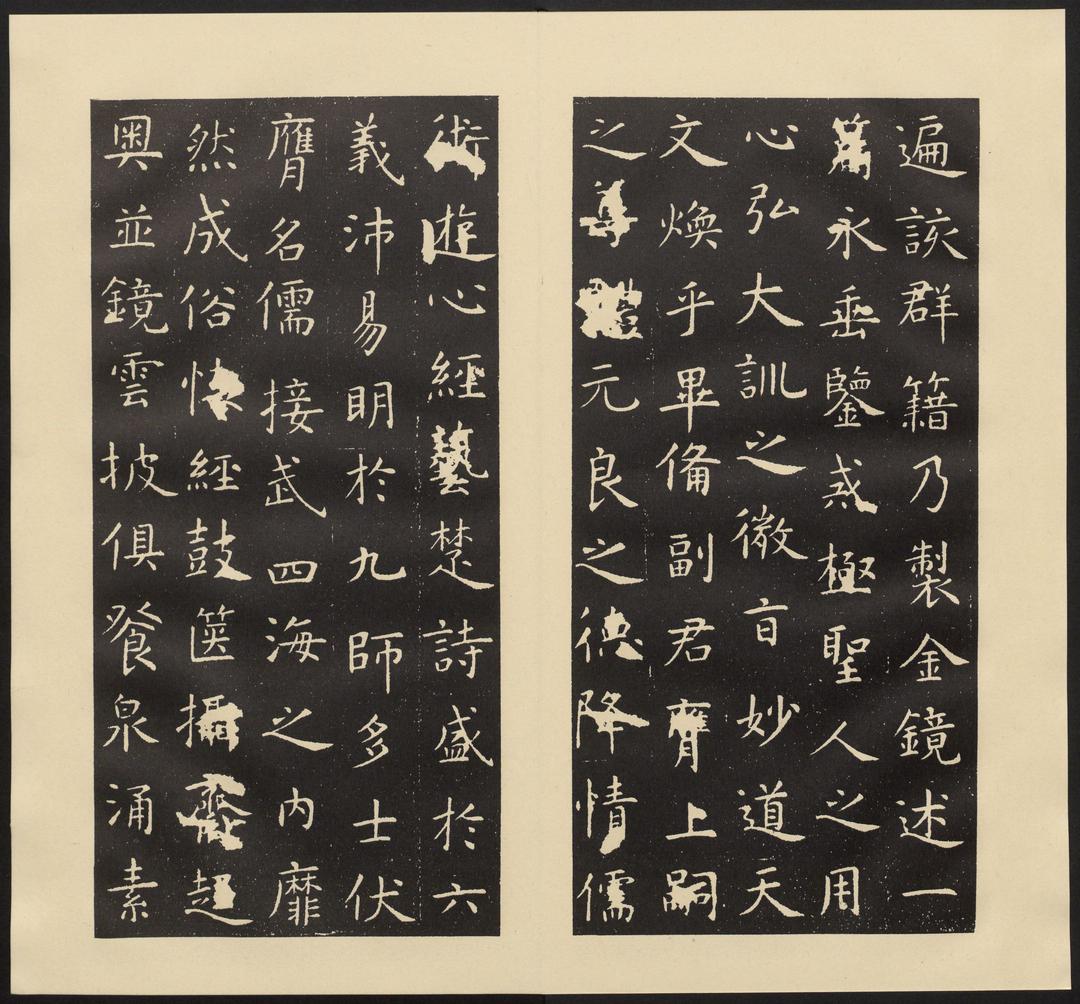 遍該群籍乃製金鏡述一
篇永垂鑒戒極聖人之用
心弘大訓之微旨妙道天
文煥乎畢備副君膺上嗣
之尊體元良之德降情儒
術遊心經藝楚詩盛於六
義沛易明於九師多士伏
膺名儒接武四海之內靡
然成俗懷經鼓篋攝齋趍
奧並鏡雲披俱餐泉涌素